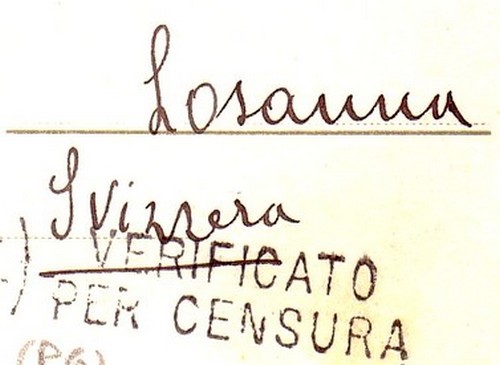 Losanna
Svizzera
VERIFICATO
PER CENSURA
(PG)